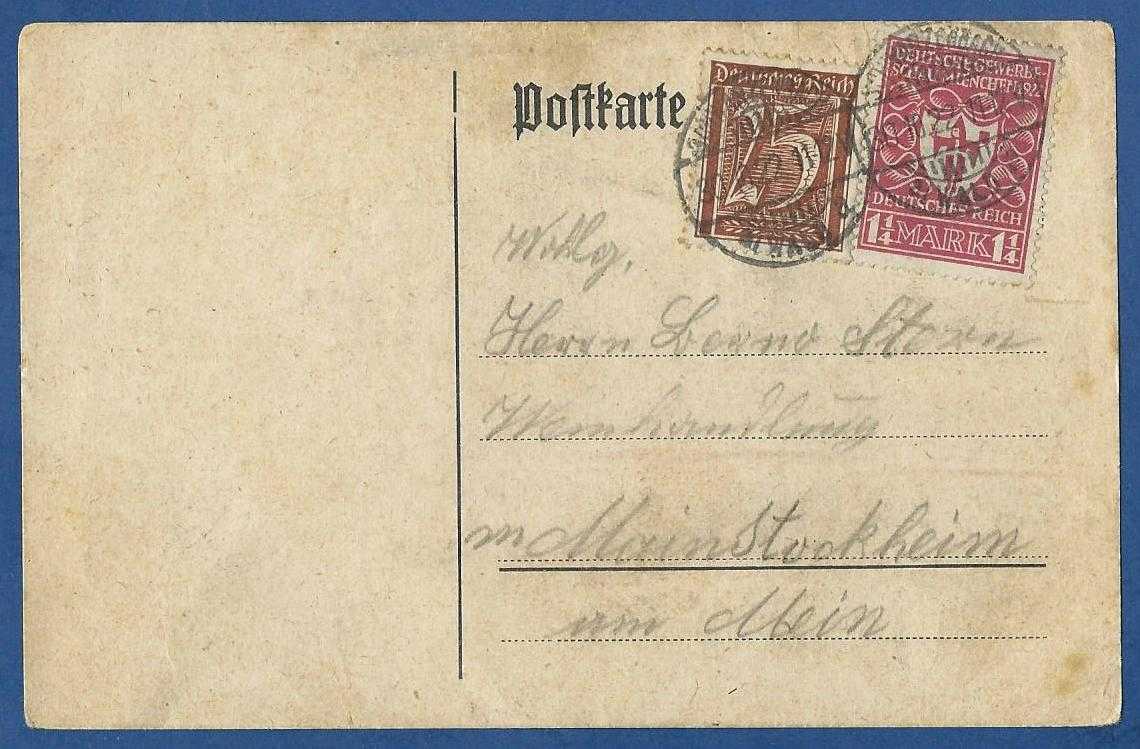 Postkarte
Deutsches Reich
25
DEUTSCHE GEWERBE-
SCHAU MÜNCHEN 1922
DEUTSCHES REICH
1 1/4 MARK 1 1/4
Wollg.
Herrn Bernd Stern
Weinhandlung
in Mainstockheim
am Mein